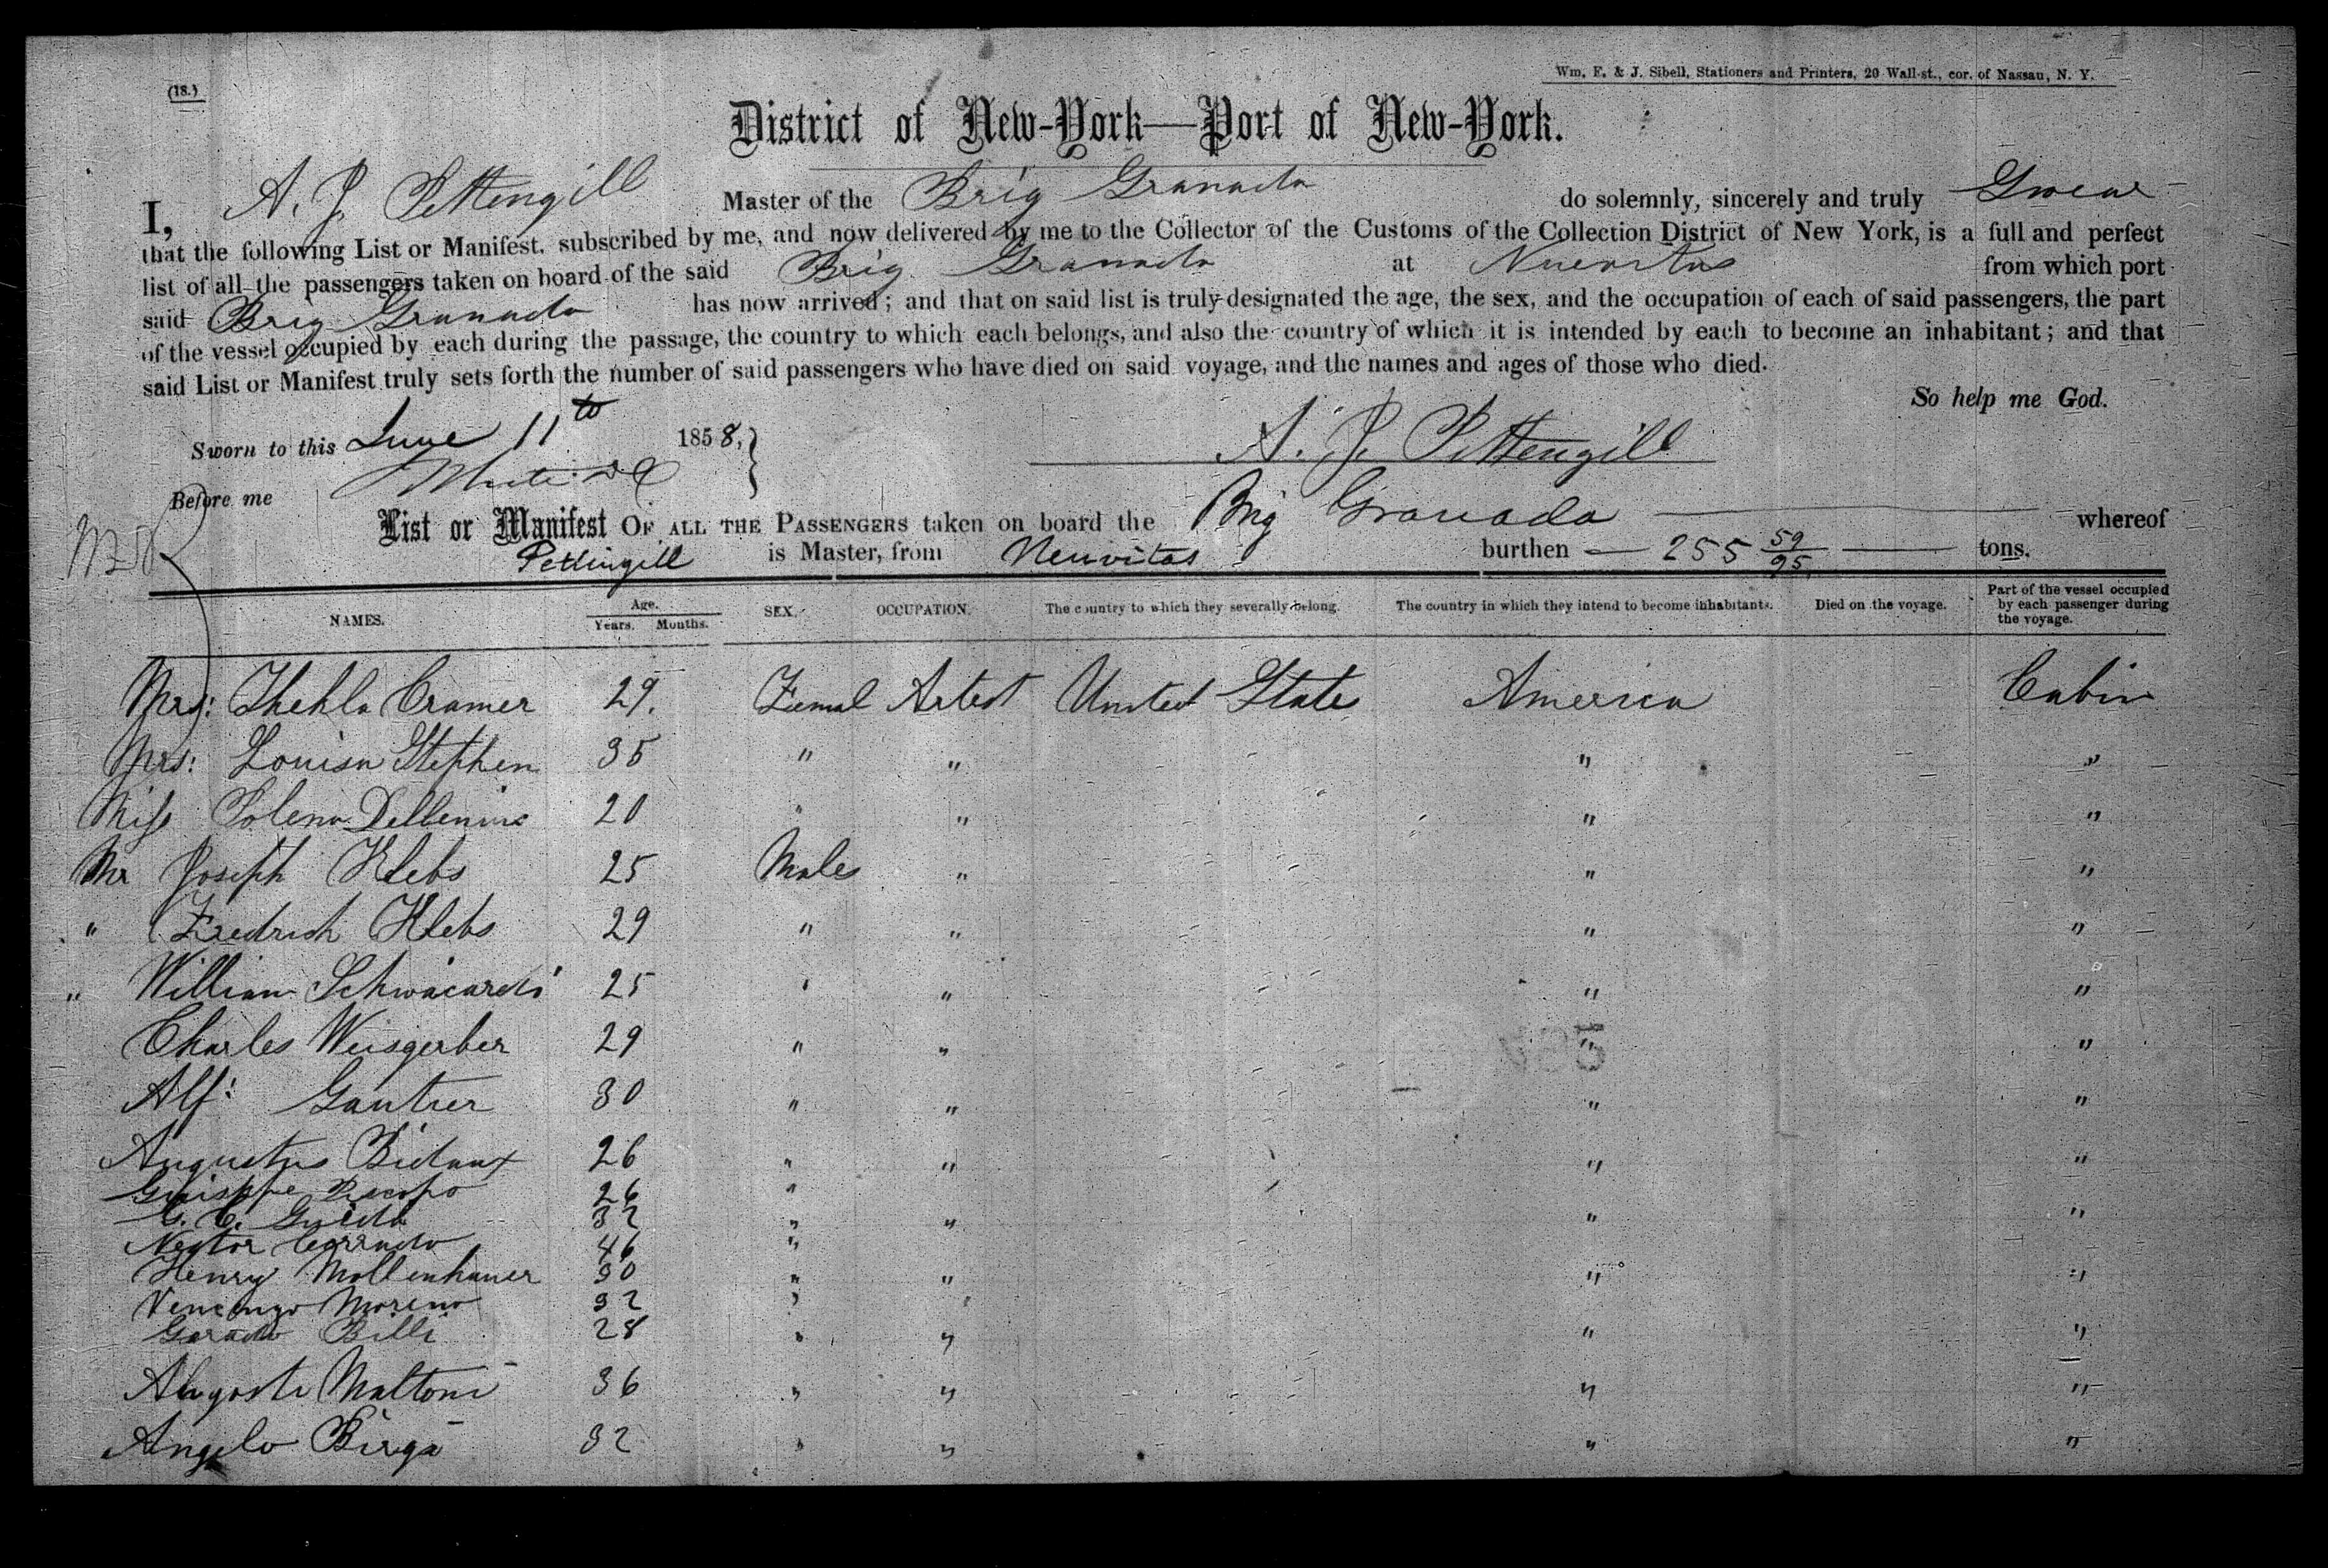 (18.)
Wm. F. & J. Sibell, Stationers and Printers, 20 Wall-st., cor. of Nassau, N. Y.
District of New-York—Port of New-York.
I, A. J. Pettengill Master of the Brig Granada do solemnly, sincerely and truly Swear
that the following List or Manifest, subscribed by me, and now delivered by me to the Collector of the Customs of the Collection District of New York, is a full and perfect
list of all the passengers taken on board of the said Brig Granada at Nuevitas from which port
said Brig Granada has now arrived; and that on said list is truly designated the age, the sex, and the occupation of each of said passengers, the part
of the vessel occupied by each during the passage, the country to which each belongs, and also the country of which it is intended by each to become an inhabitant; and that
said List or Manifest truly sets forth the number of said passengers who have died on said voyage, and the names and ages of those who died.
So help me God.
Sworn to this June 11th 1858,
A. J. Pettengill
Before me
List or Manifest OF ALL THE PASSENGERS taken on board the Brig Granada whereof
Pettingill is Master, from Neuvitas burthen 255 59/95 tons.
NAMES. Age. Years. Months. SEX. OCCUPATION. The country to which they severally belong. The country in which they intend to become inhabitants. Died on the voyage. Part of the vessel occupied by each passenger during the voyage.
Mrs: Thekla Cramer 29. Femal Artist United State America Cabin
Mrs: Louisa Stephen 35 " " " "
Miss Polena Dellenius 20 " " " "
Mr Joseph Klebs 25 Males " " "
" Fredrich Klebs 29 " " " "
" William 25 " " " "
Charles Weisgerber 29 " " " "
Alf: Gautier 30 " " " "
Augustus Bidaux 26 " " " "
Guiseppe Piscopo 26 "
C. C. Guido 32 " " " "
Nestor Corrado 46 "
Henry Mollenhauer 30 " " " "
Vencenzo Moreno 32 " "
Billi 28 " " " "
Augosti Maltoni 36 " " " "
Angelo Birga 32 " " " "